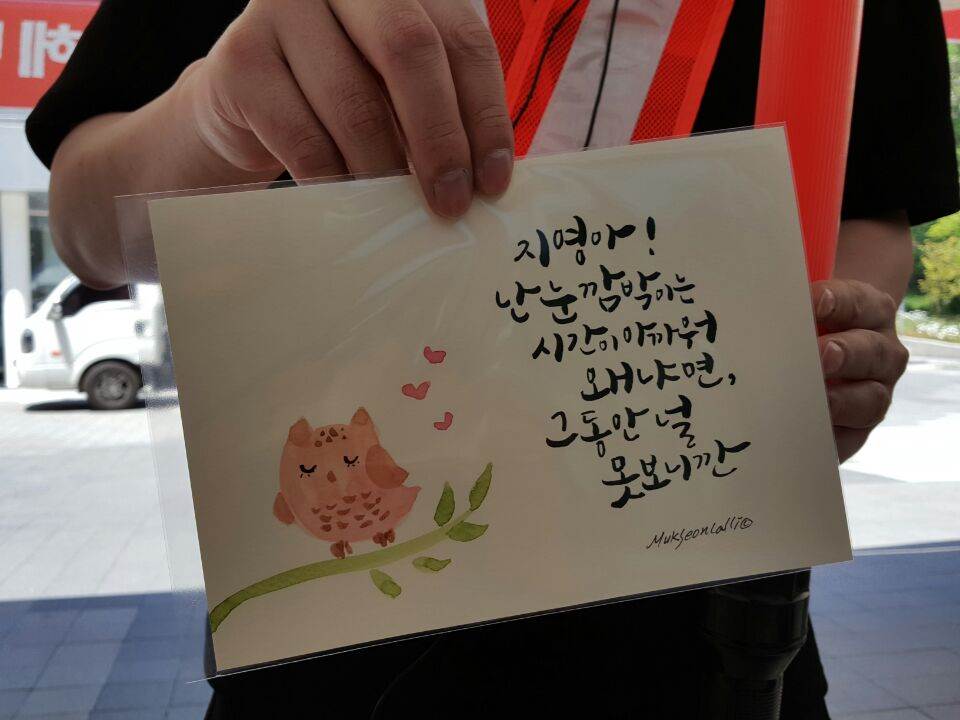 지영아!
난 눈 깜박이는
시간이 아까워
왜냐면,
그동안 널
못보니깐
MukseonCalli©